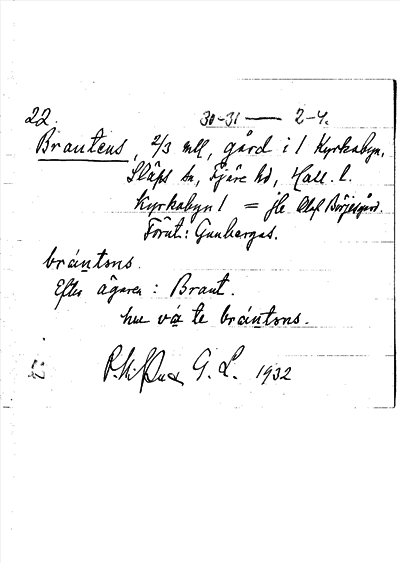 22. 30-31 — 2-4.
Brantens, 2/3 mtl, gård i 1 Kyrkobyn,
Släps sn, Fjäre hd, Hall. l.
Kyrkobyn 1 = jfr Olof Börjesgård.
Förut: Gunbergas.
brántons.
Efter ägaren: Brant.
hu vá te brántons.
G. L. 1932